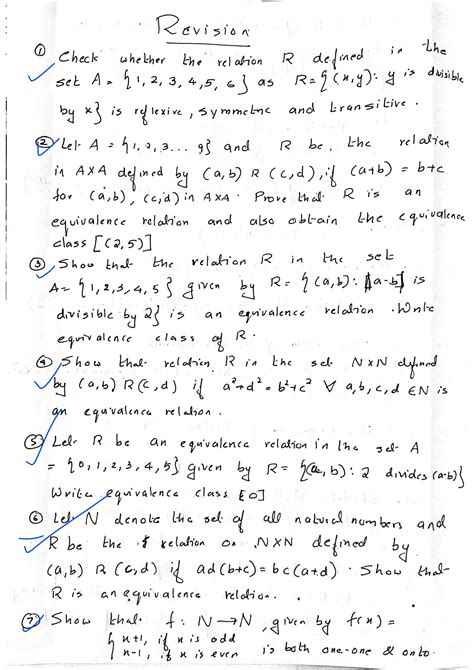 Revision
① Check whether the relation R defined in the
set A = {1, 2, 3, 4, 5, 6} as R = {(x, y): y is divisible
by x} is reflexive, symmetric and transitive.
② Let A = {1, 2, 3 ... 9} and R be the relation
in A×A defined by (a, b) R (c, d), if (a+b) = b+c
for (a, b), (c, d) in A×A. Prove that R is an
equivalence relation and also obtain the equivalence
class [(2, 5)]
③ Show that the relation R in the set
A = {1, 2, 3, 4, 5} given by R = {(a, b): |a-b| is
divisible by 2} is an equivalence relation. Write
equivalence class of R.
④ Show that relation R in the set N×N defined
by (a, b) R (c, d) if a²+d² = b²+c² ∀ a, b, c, d ∈ N is
an equivalence relation.
⑤ Let R be an equivalence relation in the set A
= {0, 1, 2, 3, 4, 5} given by R = {(a, b): 2 divides (a-b)}
Write equivalence class [0]
⑥ Let N denote the set of all natural numbers and
R be the relation on N×N defined by
(a, b) R (c, d) if ad(b+c) = bc(a+d). Show that
R is an equivalence relation.
⑦ Show that f: N → N, given by f(x) =
{ x+1, if x is odd
x-1, if x is even is both one-one & onto.